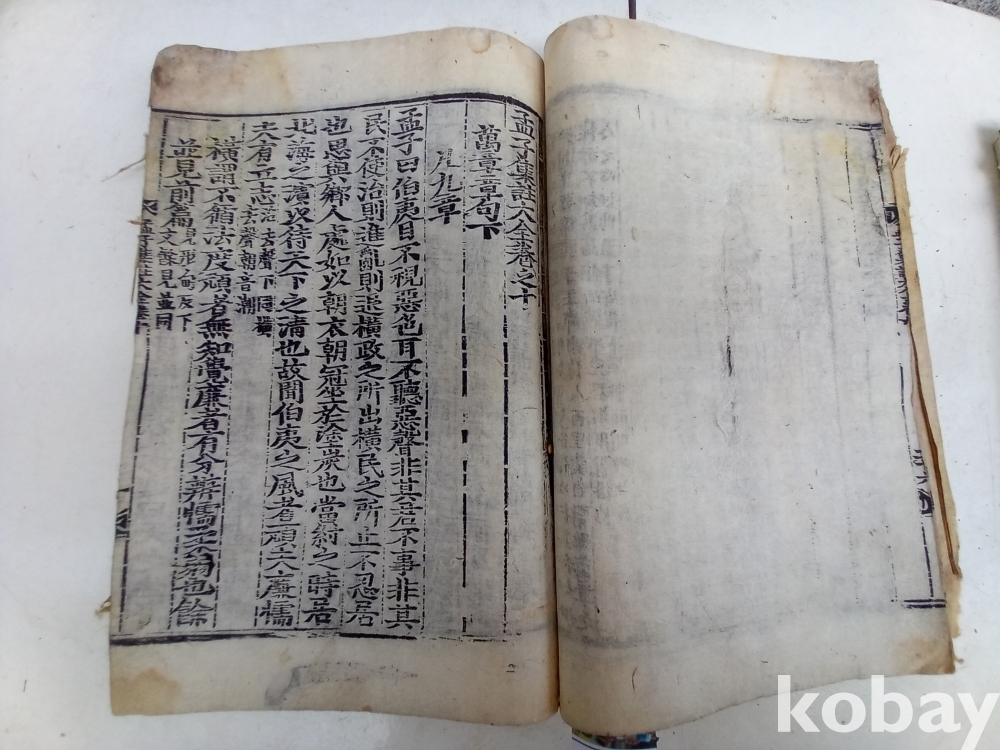 孟子集註大全卷之十
萬章章句下
凡九章
孟子曰伯夷目不視惡色耳不聽惡聲非其君不事非其
民不使治則進亂則退橫政之所出橫民之所止不忍居
也思與鄕人處如以朝衣朝冠坐於塗炭也當紂之時居
北海之濱以待天下之淸也故聞伯夷之風者頑夫廉懦
夫有立志治去聲下同橫去聲朝音潮
橫謂不循法度頑者無知覺廉者有分辨懦柔弱也餘
並見前篇見形甸反下文餘見並同
kobay